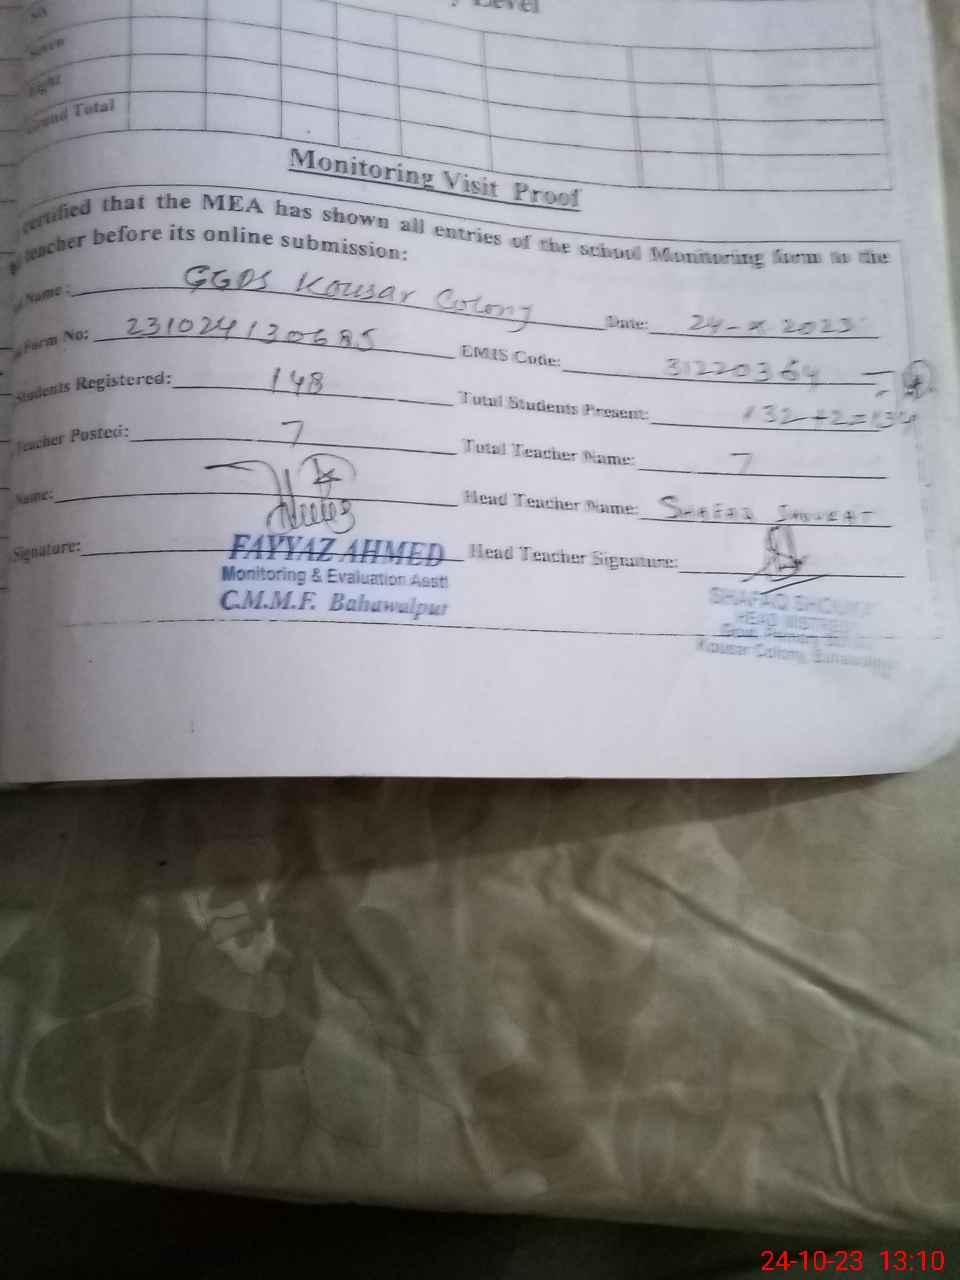 Level
Six
Seven
Eight
Grand Total
Monitoring Visit Proof
certified that the MEA has shown all entries of the school Monitoring form to the
teacher before its online submission:
Name: GGPS Kousar Colony Date: 24-x-2023
Form No: 231024130685 EMIS Code: 31220364
Students Registered: 148 Total Students Present: 132+2=134
Teacher Posted: 7 Total Teacher Name: 7
Name: Head Teacher Name: SHAFAQ
Signature: Head Teacher Signature:
FAYYAZ AHMED
Monitoring & Evaluation Asstt
C.M.M.F. Bahawalpur
SHAFAQ
HEAD MISTRESS
Kousar Colony, Bahawalpur
24-10-23 13:10